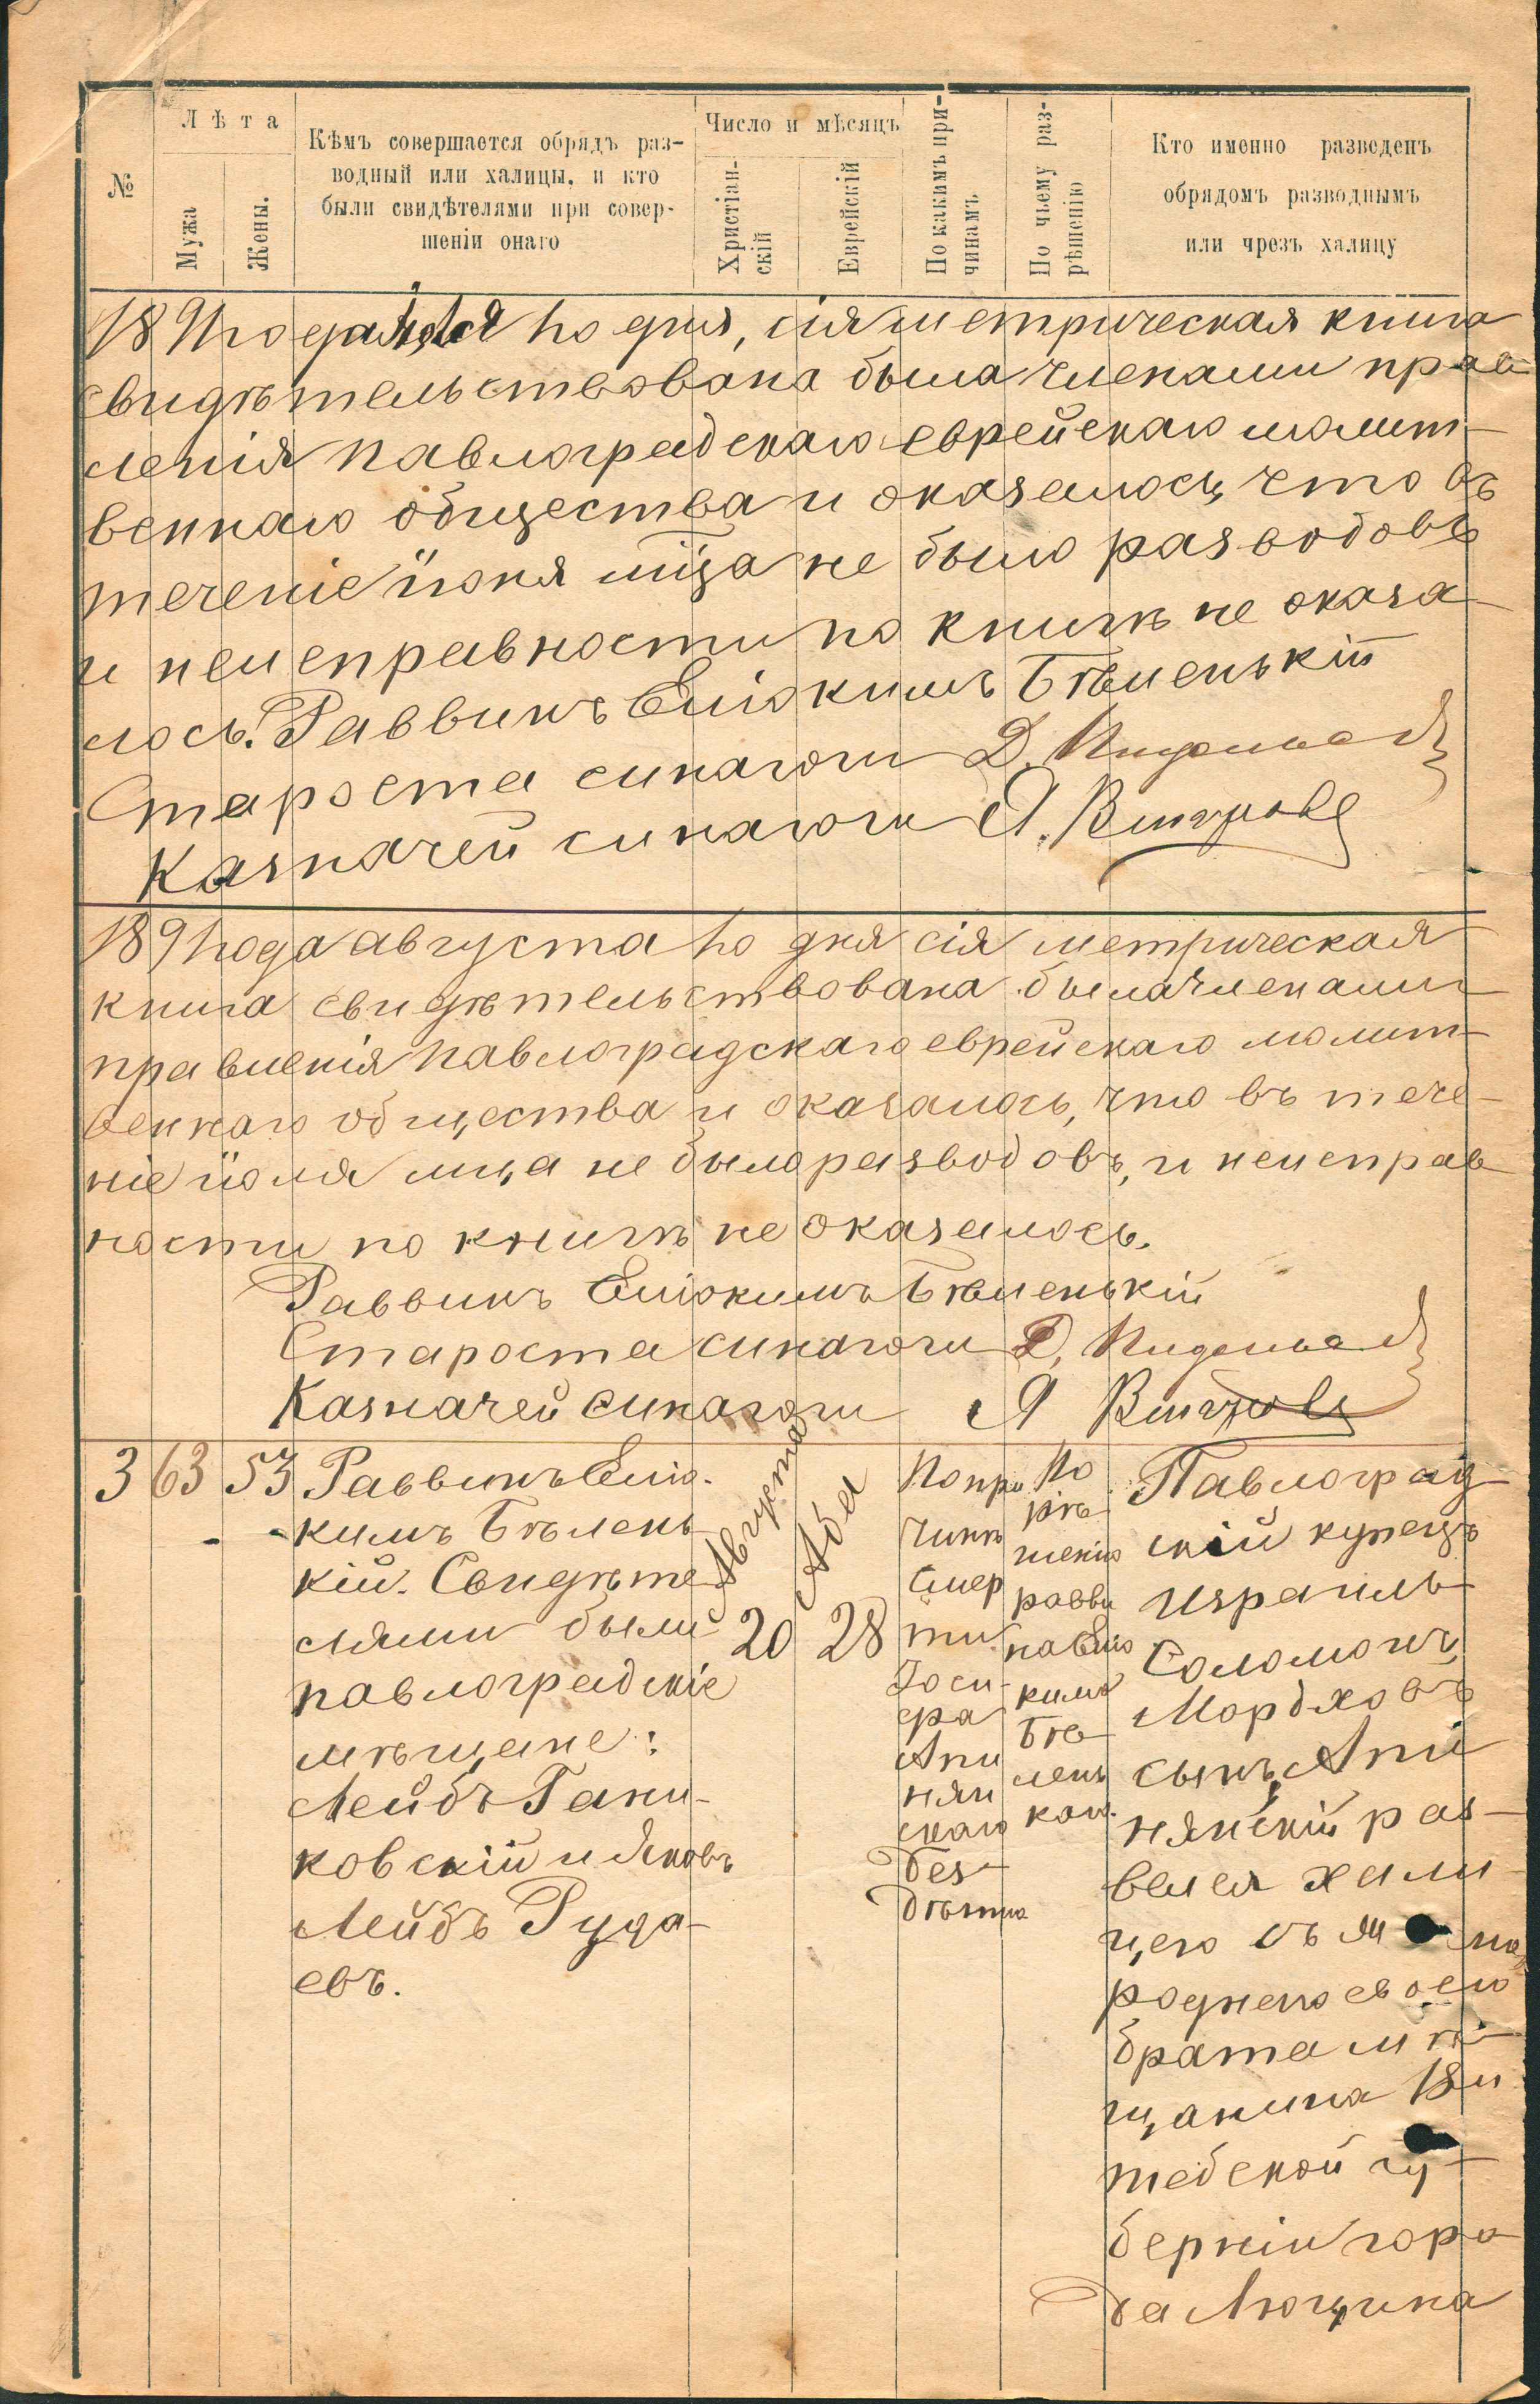 №
Лѣта
Мужа
Жены.
Кѣмъ совершается обрядъ раз-
водный или халицы, и кто
были свидѣтелями при совер-
шеніи онаго
Число и мѣсяцъ
Христіан-
скій
Еврейскій
По какимъ при-
чинамъ.
По чьему раз-
рѣшенію
Кто именно разведенъ
обрядомъ разводнымъ
или чрезъ халицу
1891 года 1го дня, сія метрическая книга
свидѣтельствована была членами прав
ленія павлоградскаго еврейскаго молит-
веннаго общества и оказалось, что въ
теченіе іюня мца не было разводовъ
и неисправности по книгѣ не оказа-
лось. Раввинъ Еліокимъ Бѣленькій
Староста синагоги Д.
Казначей синагоги Я.
1891 года августа 1го дня сія метрическая
книга свидѣтельствована была членами
правленія павлоградскаго еврейскаго молит-
веннаго общества и оказалось, что въ тече-
ніе іюля мца не было разводовъ, и неисправ
ности по книгѣ не оказалось.
Раввинъ Еліокимъ Бѣленькій
Староста синагоги Д.
Казначей синагоги Я
3 63 53
Раввинъ Еліо-
кимъ Бѣлень
кій. Свидѣте
лями были
павлоградскіе
мѣщане:
Лейбъ Гани-
ковскій и Яковъ
Лейбъ Руда-
евъ.
Августа
20
Аба
28
По при
чинѣ
смер
ти
Іоси-
фа
Апи
нян
скаго
без-
дѣтна
По
рѣ-
шенію
равви
на Еліо
кима
Бѣ-
лень
каго.
Павлоград
скій купецъ
Израиль
Соломонъ
Мордховъ
сынъ Апи
нянскій раз-
велся хали-
цею съ
роднаго своего
брата мѣ-
щанина Ви
тебской гу-
берніи горо
да Люцина